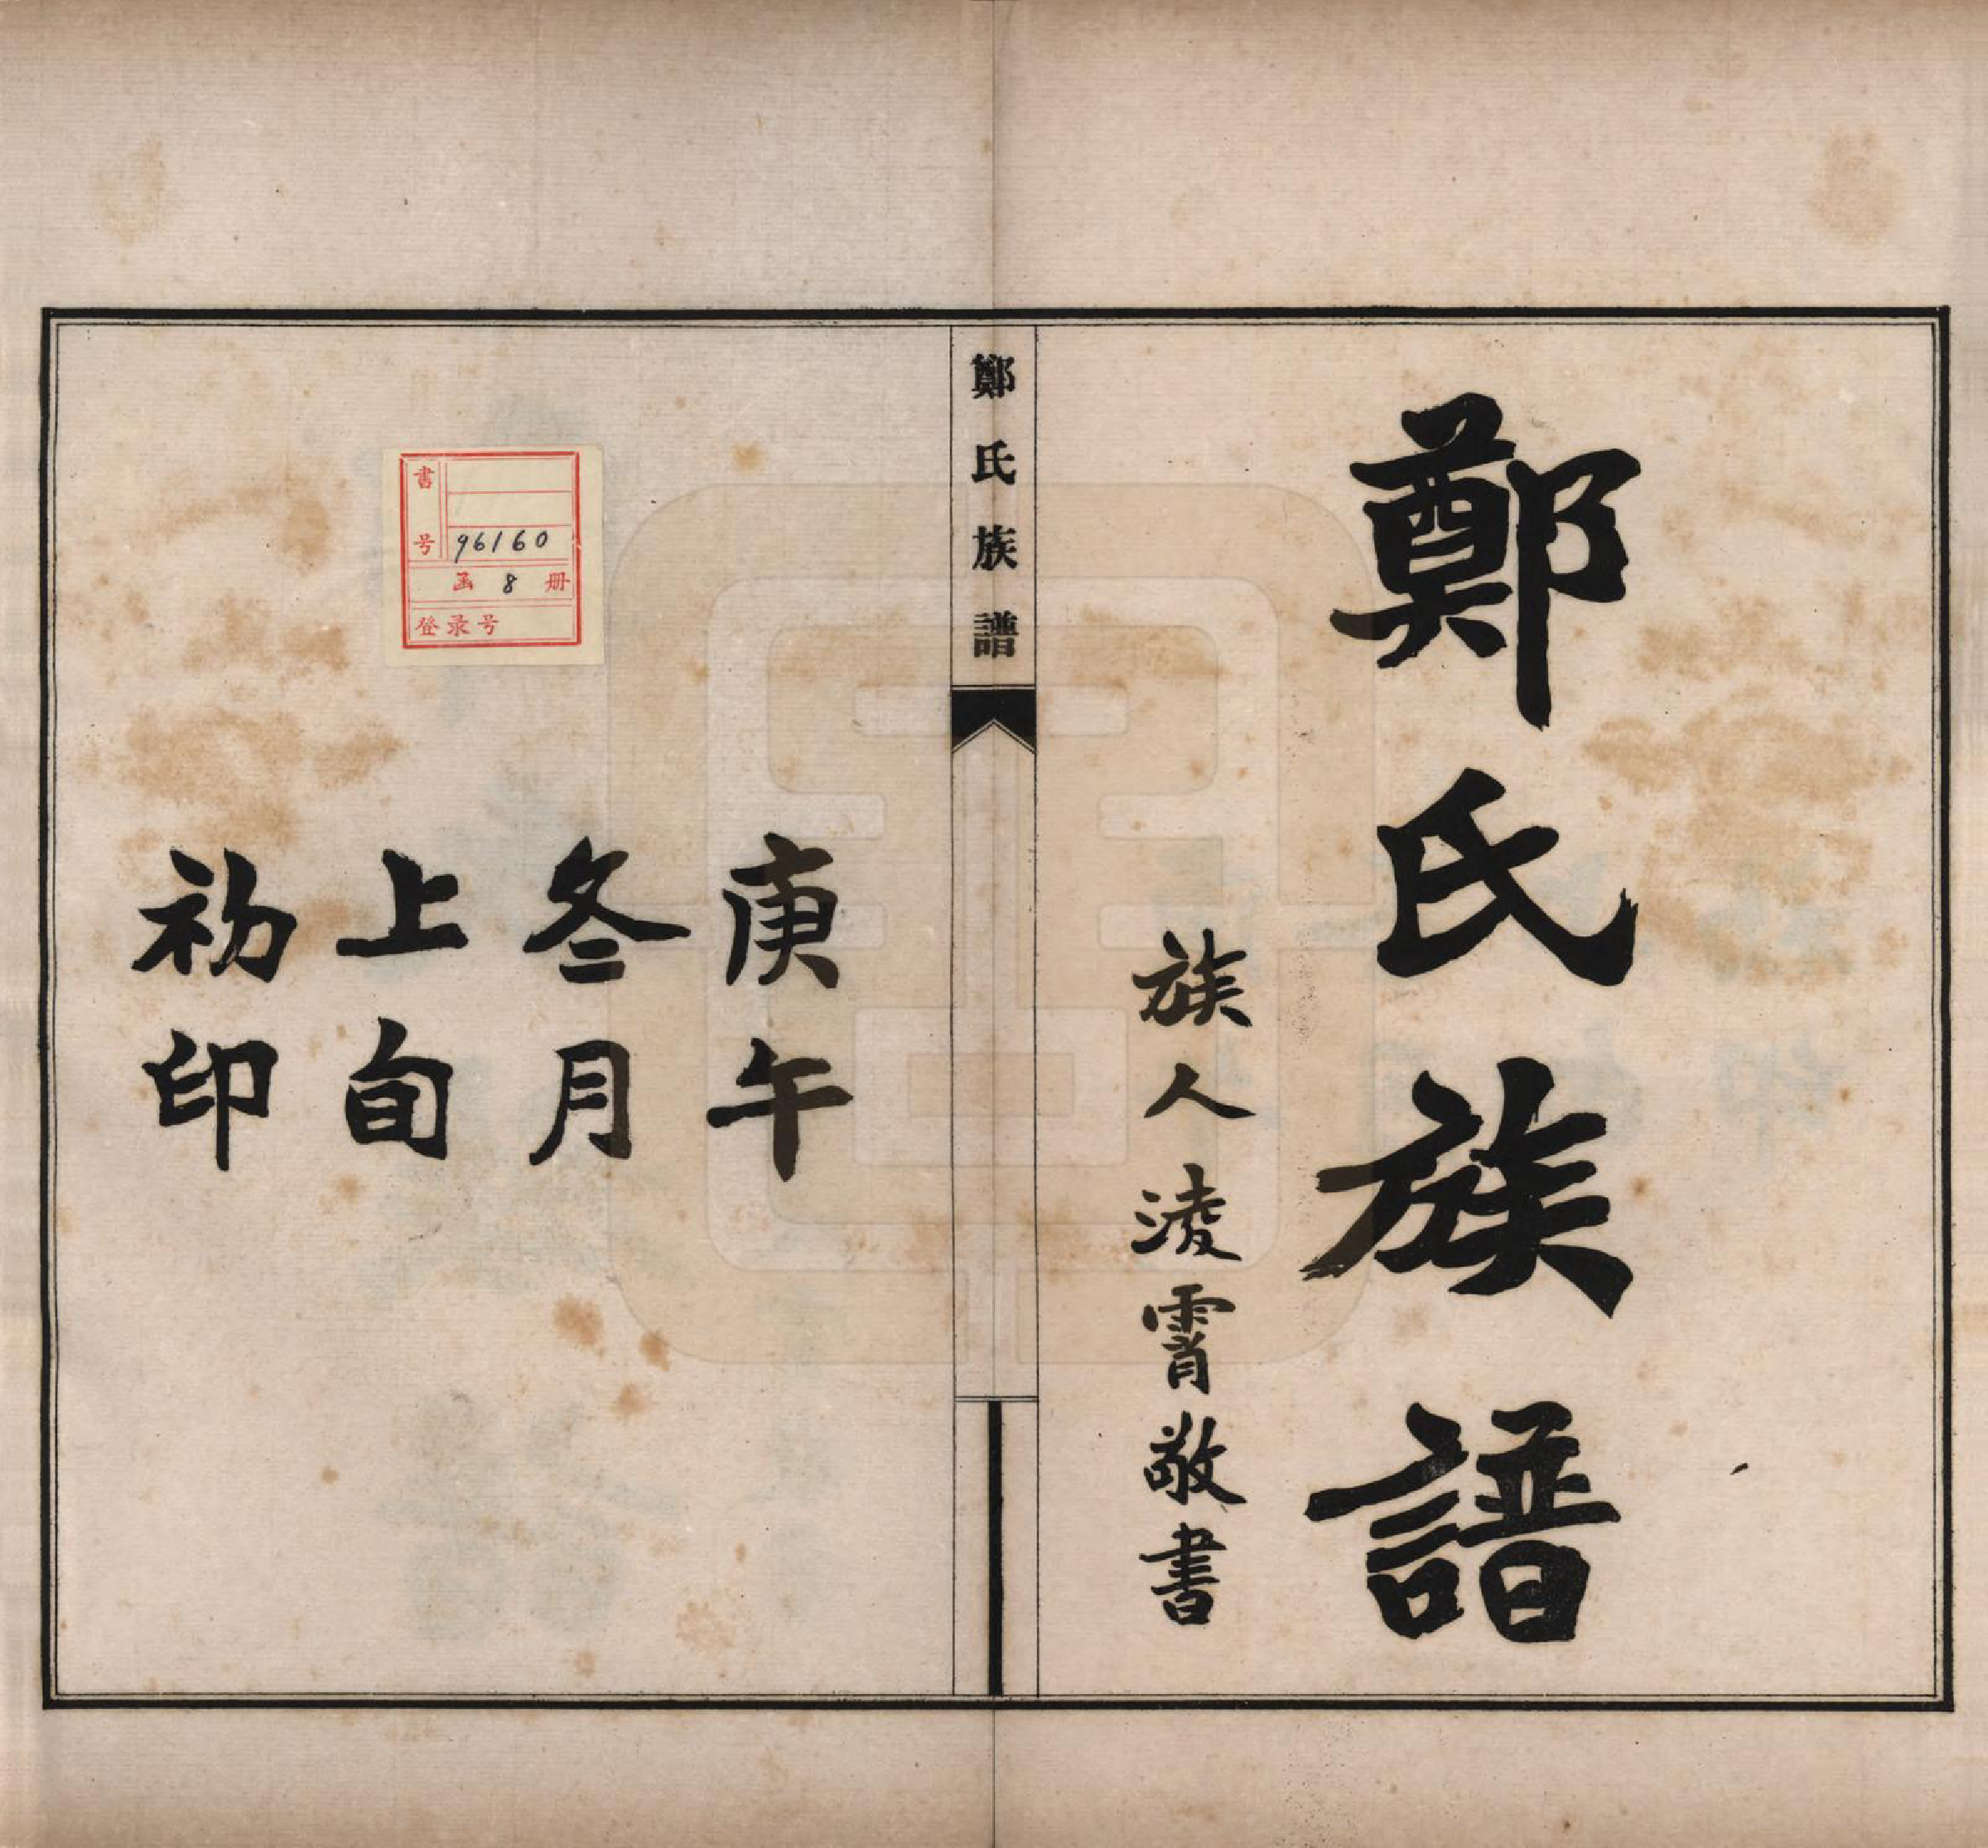 鄭氏族譜
族人淩霄敬書
鄭氏族譜
庚午
冬月
上旬
初印
書号 96160
函 8 册
登录号